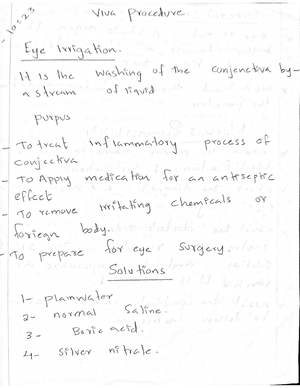 10:23
Viva Procedure
Eye Irrigation.
It is the washing of the conjenctiva by-
a stream of liquid
purpus
- To treat inflammatory process of
conjectiva
- To Apply medication for an antiseptic
effect
- To remove irritating chemicals or
foriegn body.
- To prepare for eye surgery.
Solutions
1- plainwater
2- normal Saline.
3- Boric acid.
4- Silver nitrate.